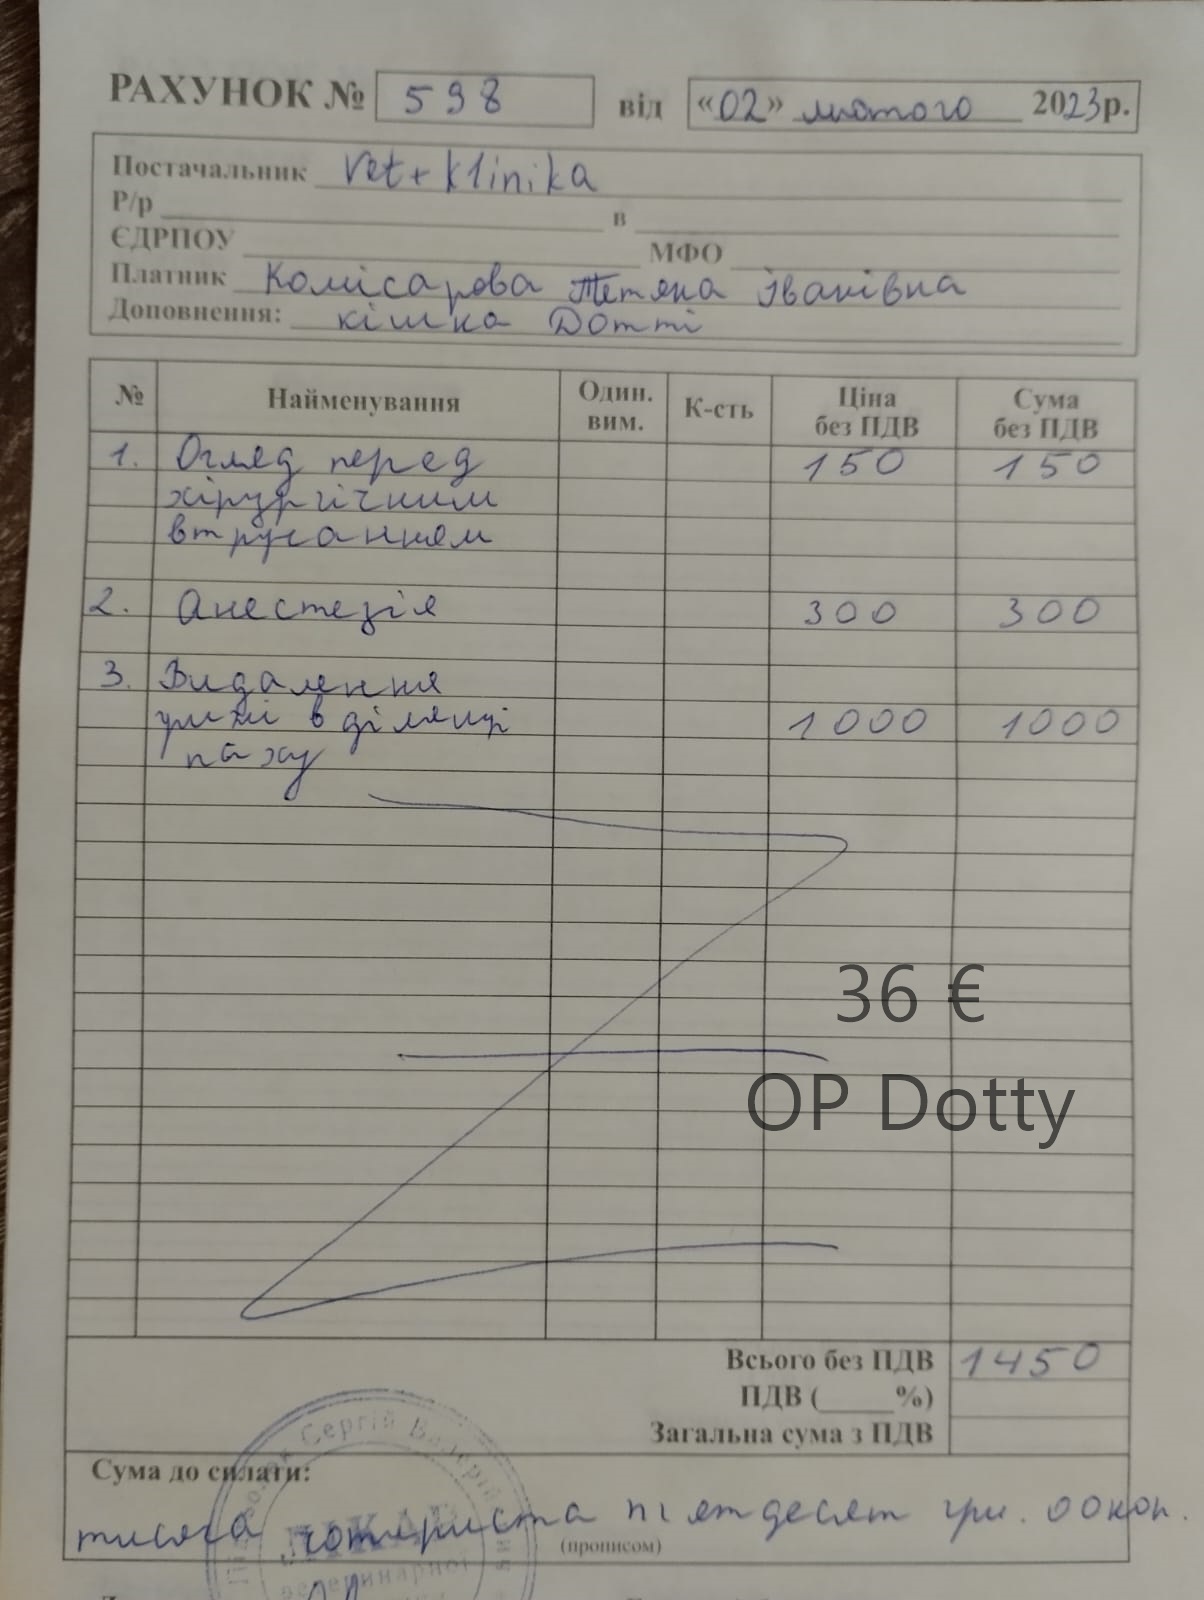 РАХУНОК № 598 від «02» лютого 2023р.
Постачальник Vet+klinika
Р/р в
ЄДРПОУ МФО
Платник Комісарова Тетяна Іванівна
Доповнення: кішка Дотті
№ Найменування Один. вим. К-сть Ціна без ПДВ Сума без ПДВ
1. Огляд перед 150 150
хірургічним
втручанням
2. Анестезія 300 300
3. Видалення
в ділянці 1000 1000
паху
36 €
OP Dotty
Всього без ПДВ 1450
ПДВ ( %)
Загальна сума з ПДВ
Сума до сплати:
тисяча чотириста пʼятдесят грн. 00 коп.
(прописом)
Сергій Валерій
ЛІКАР
ветеринарної